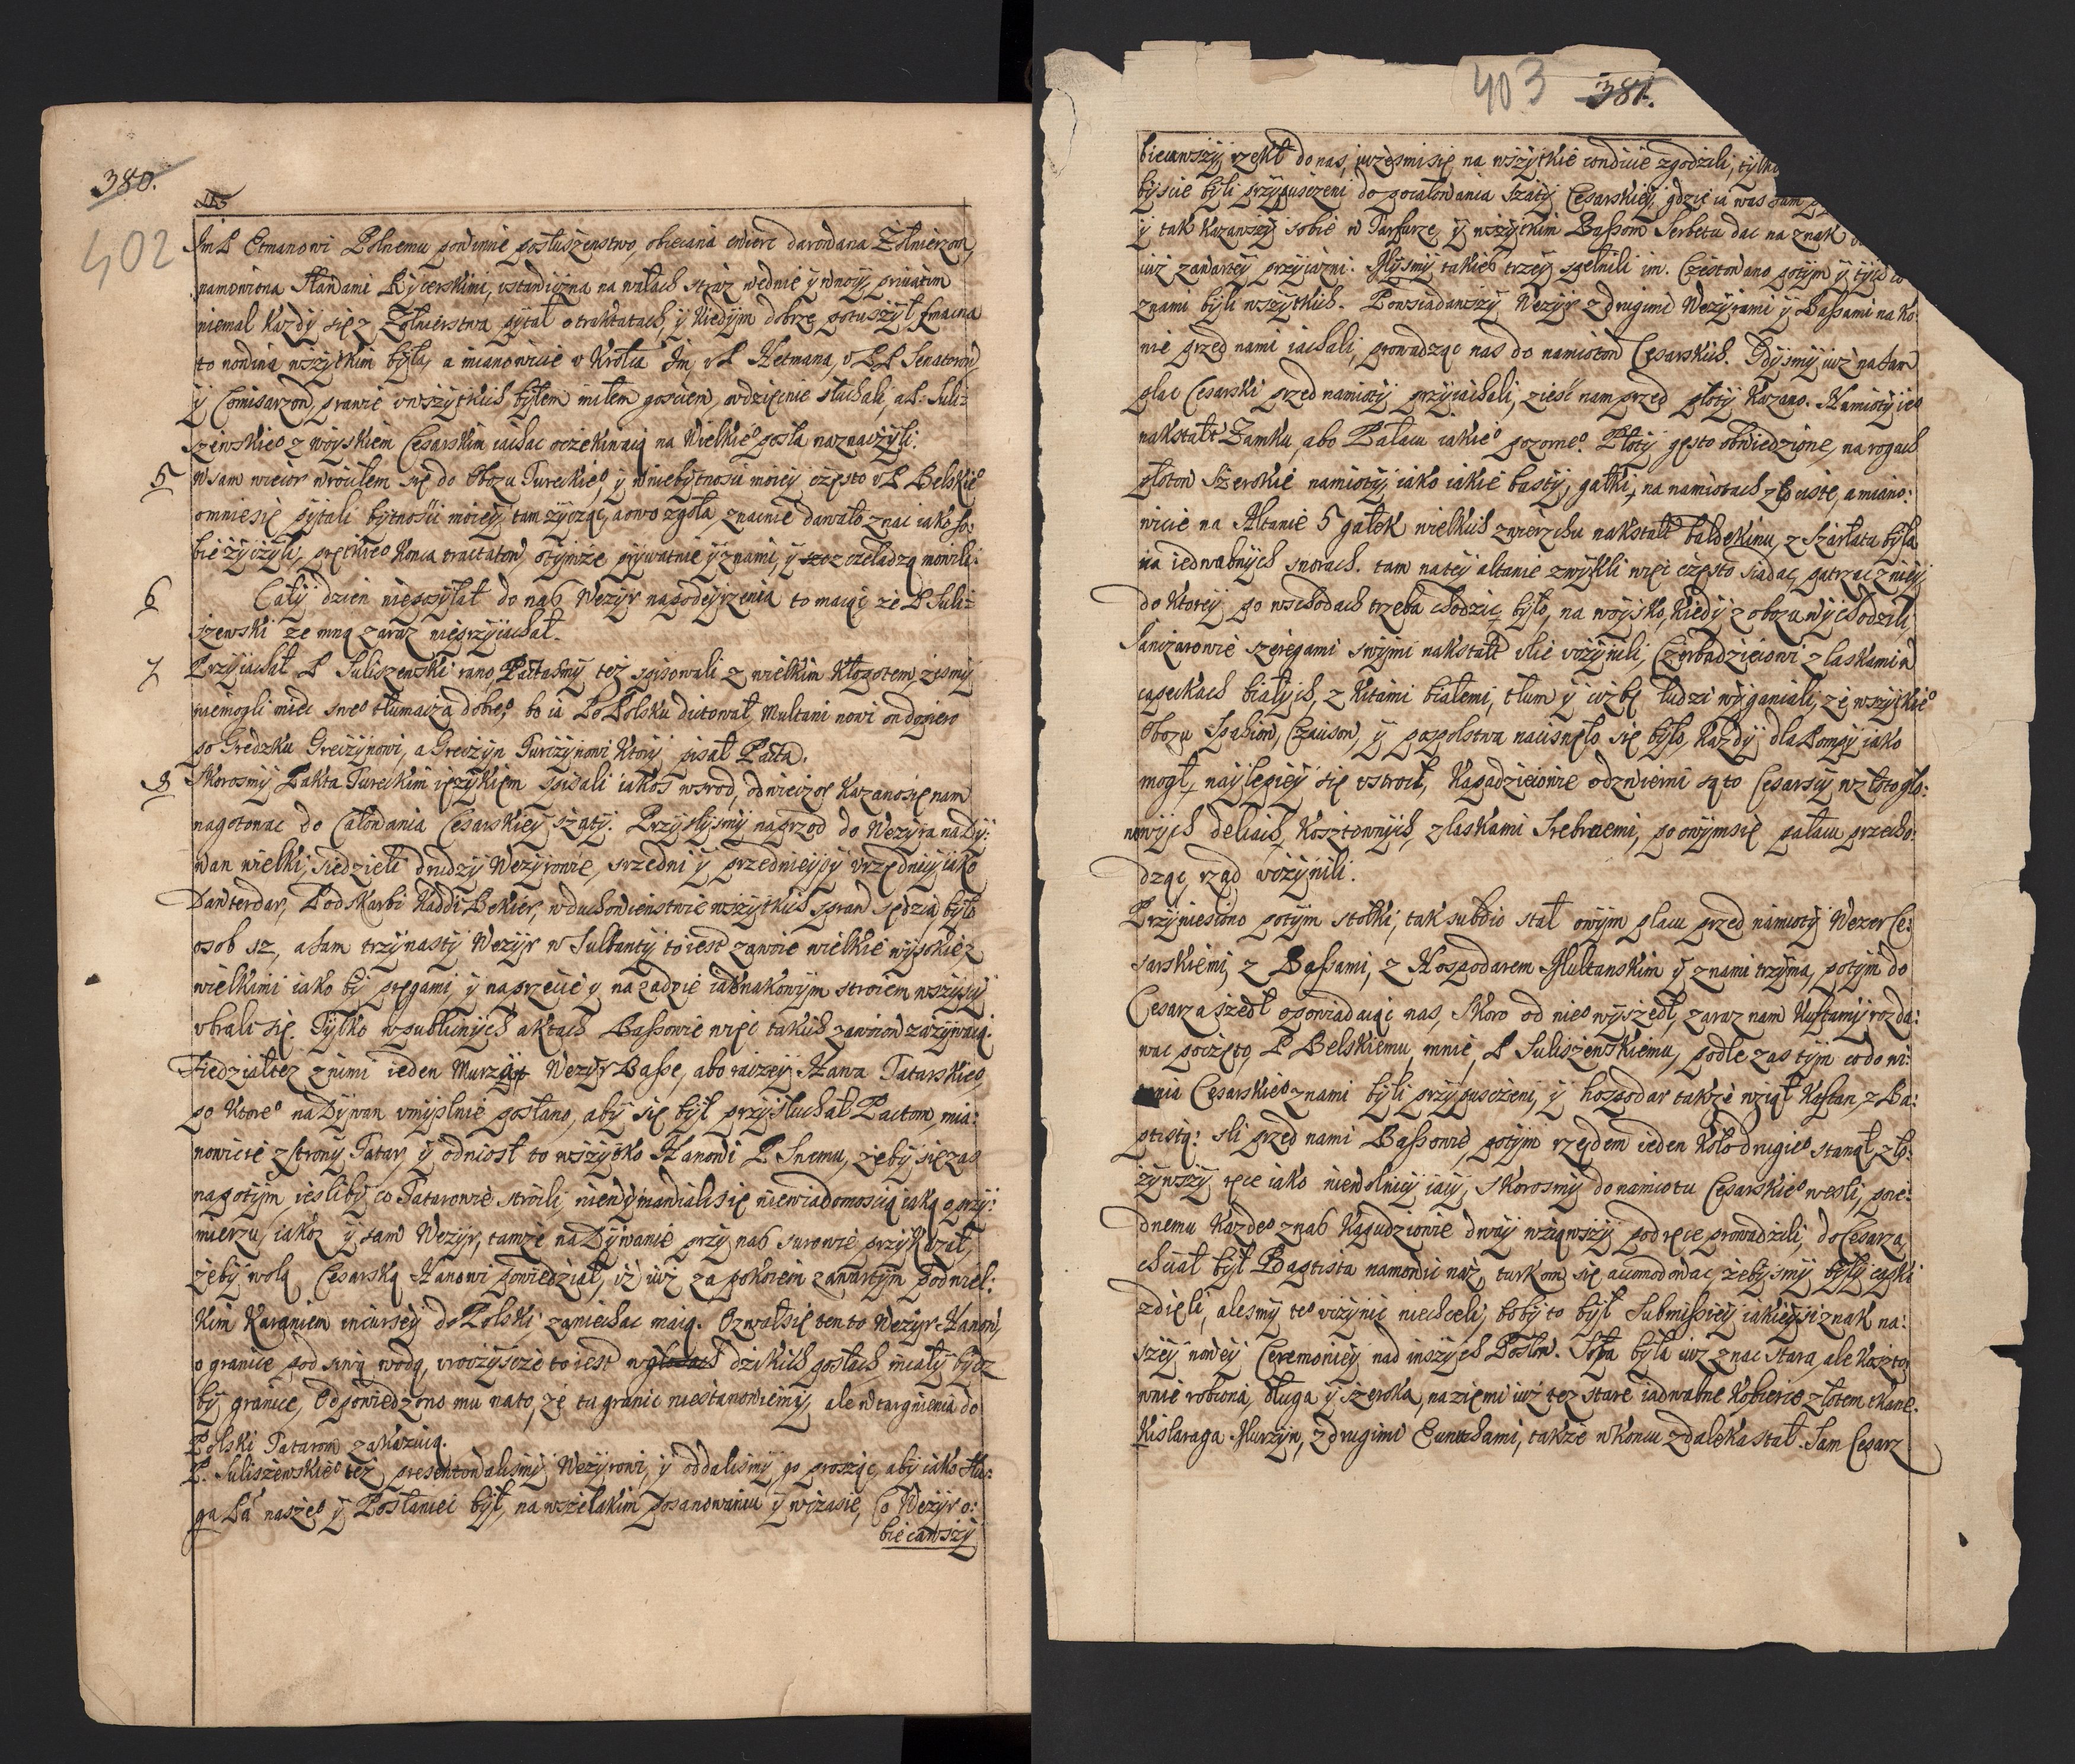 380.
402
Im P Etmanowi Polnemu powinne posłuszenstwo, obiecana cwierc darowana Zołnierzom,
namowiona stanami Rycerskimi, ustawiczna na wałach straz wednie y wnocy, privatim
niemal kazdy się z Zołnierstwa pytał o traktatach, y kiedym dobrze potuszył smaczna
to nowina wszytkim była, a mianowicie v Krolca Im, v P Hetmana, v PP Senatorow
y Comisarzow, prawie vwszytkich byłem miłem gosciem, wdzięcznie słuchali, a P. Suli=
szewskieo z woyskiem Cesarskim iachac oczekiwaią na Wielkieo posła naznaczyli.
5 W sam wieczor wrociłem się do Obozu Tureckieo, y w niebytnosci moiey często v P. Belskieo
omnie się pytali bytnosci moiey tam zycząc, a owo zgoła znacnie dawało znac iako so:
bie zyczyli prętkieo konca tractatow, otymze prywatnie y znami, y z czeladzą mowili.
6 Cały dzien nieposyłał do nas Wezyr napodeyrzenia to maiąc ze P Suli=
szewski ze mną zaraz nieprzyiachał.
7 Przyiachał P Suliszewski rano, Pactasmy też spisowali z wielkim kłopotem, zesmy
niemogli miec sweo tłumacza dobreo, bo ia Po Polsku dictował, Multani nowi on dopiero
po Gredzku Greczynowi, a Greczyn Turczynowi ktory pisał Pacta.
8 Skorosmy Pakta Tureckim ięzykiem spisali iakos wsrod, odwieczor kazano się nam
nagotowac do Całowania Cesarskiey szaty. Przyslysmy naprzod do Wezyra na Dy:
wan wielki, siedzieli drudzy Wezyrowie, srzedni y przednieyszy vrzędnicy, iako
Dawterdar, Podskarbi Kaddi Bekier, w duchowienstwie wszytkich spraw sędzia, było
osob 12, a sam trzynasty Wezyr w Sultanty to iest zawoie wielkie wysokie z
wielkimi iako by pręgami y na przecie y na zadzie iednakowym stroiem wszyscy
vbrali się. Tylko w publicznych aktach Bassowie więc takich zawoiow zazywaią.
Siedział tez z nimi ieden Murza Wezyr Basse, abo raczey Hana Tatarskieo
po ktoreo na Dywan vmyslnie posłano, aby się był przysłuchał Pactom, mia:
nowicie z strony Tatar, y odniosł to wszytko Hanowi P Swemu, zeby się zas
napotym, iesliby co Tatarowie stroili, niewymawiali się niewiadomoscią iaką o przy:
mierzu, iakoz y sam Wezyr, tamze na Dywanie przy nas surowie przykazał,
żeby wolą Cesarską Hanowi powiedział, iż iuż za pokoiem zawartym pod wiel:
kim karaniem incursiey do Polski zaniechac maią. Ozwał się ten to Wezyr Hanow,
o granice, pod siną wodą, vroczyszcze to iest w dzikich polach, miały bydz
by granice, Odpowiedzono mu nato, ze tu granic niestanowiemy, ale wtargnienia do
Polski Tatarom zakazuią.
P. Suliszewskieo tez presentowalismy Wezyrowi, y oddalismy go prosząc, aby iako słu:
ga Pa naszeo y Posłaniec był, na wszelakim posanowaniu y wczasie, Co Wezyr o:
biecawszy
403 381.
biecawszy rzekł do nas, iuzesmi się na wszytkie condicie zgodzili, tylko
byscie byli przypuszczeni do pocałowania szaty Cesarskiey, gdzie ia was sam
y tak kazawszy sobie w Farfurze, y wszytkim Bassom Serbetu dac na znak
iuż zawartey przyiazni. Mysmy takieo trzey spełnili im. Częstowano potym y tych co
znami byli wszytkich. Powsiadawszy Wezyr z drugimi Wezyrami y Bassami na ko
nie przed nami iachali, prowadząc nas do namiotow Cesarskich. Gdysmy iuż na sam
plac Cesarski przed namioty przyiachali, ziesc nam przed płoty kazano. Namioty ieo
nakstałt Zamku, abo Pałacu iakieo pozorneo. Płoty gęsto obwiedzione, na rogach
płotow szerokie namioty, iako iakie basty, gałki na namiotach złociste, a miano:
wicie na Altanie 5 gałek wielkich zwierzchu nakstałt baldekinu, z Szarłatu była
na iedwabnych snorach. tam na tey altanie zwykli więc często siadac, patrzac z niey
do ktorey po wschodach trzeba chodzic było, na woysko, kiedy z obozu wychodzili,
Janczarowie szeregami swymi nakstałt ulic vczynili, Czorbadzieiowi z laskami w
capeckach białych, z kitami białemi, tłum y cizbę ludzi wyganiali, ze wszytkieo
Obozu Spahiow, Czausow, y pospolstwa nacisnęło się było, każdy dla Pompy iako
mogł, naylepiey się vstroił, Kapadzieiowie odzwierni są to Cesarscy w złotogło:
wowych deliach, kosztownych, z laskami Srebrnemi, po owym się pałacu przecho:
dząc, rząd vczynili.
Przyniesiono potym stołki, tak subdio stał owym placu przed namioty Wezer Ce:
sarskiemi, z Bassami, z Hospodarem Multanskim y znami trzyma, potym do
Cesarza szedł opowiadaiąc nas, skoro od nieo wyszedł, zaraz nam Kuftany rozda:
wac poczęto, P Belskiemu, mnie, P Suliszewskiemu, podle zas tym co do wi:
dzenia Cesarskieo znami byli przypuszczeni, y hospodar także wziął Kaftan, z Ba:
ptistą: sli przed nami Bassowie, potym rzędem ieden koło drugieo stanął, zło:
żywszy ręce iako niewolnicy iacy, skorosmy do namiotu Cesarskieo wesli, poie:
dnemu każdeo z nas Kapudziowie dway wziąwszy pod ręce prowadzili, do Cesarza,
chciał był Baptista namowic nas, turkom się accomodowac, zebysmy były capki
zdięli, alesmy teo vczynic niechceli, boby to był Submissiey iakieysi znak na:
szey nowey Ceremoniey nad inszych Posłow. Sofa była iuz znac stara, ale koszto:
wnie robiona, długa y szeroka, na ziemi iuż tez stare iadwabne kobierce złotem tkane.
Kislaraga Murzyn, z drugimi Eunuchami, także w koncu zdaleka stał. Sam Cesarz